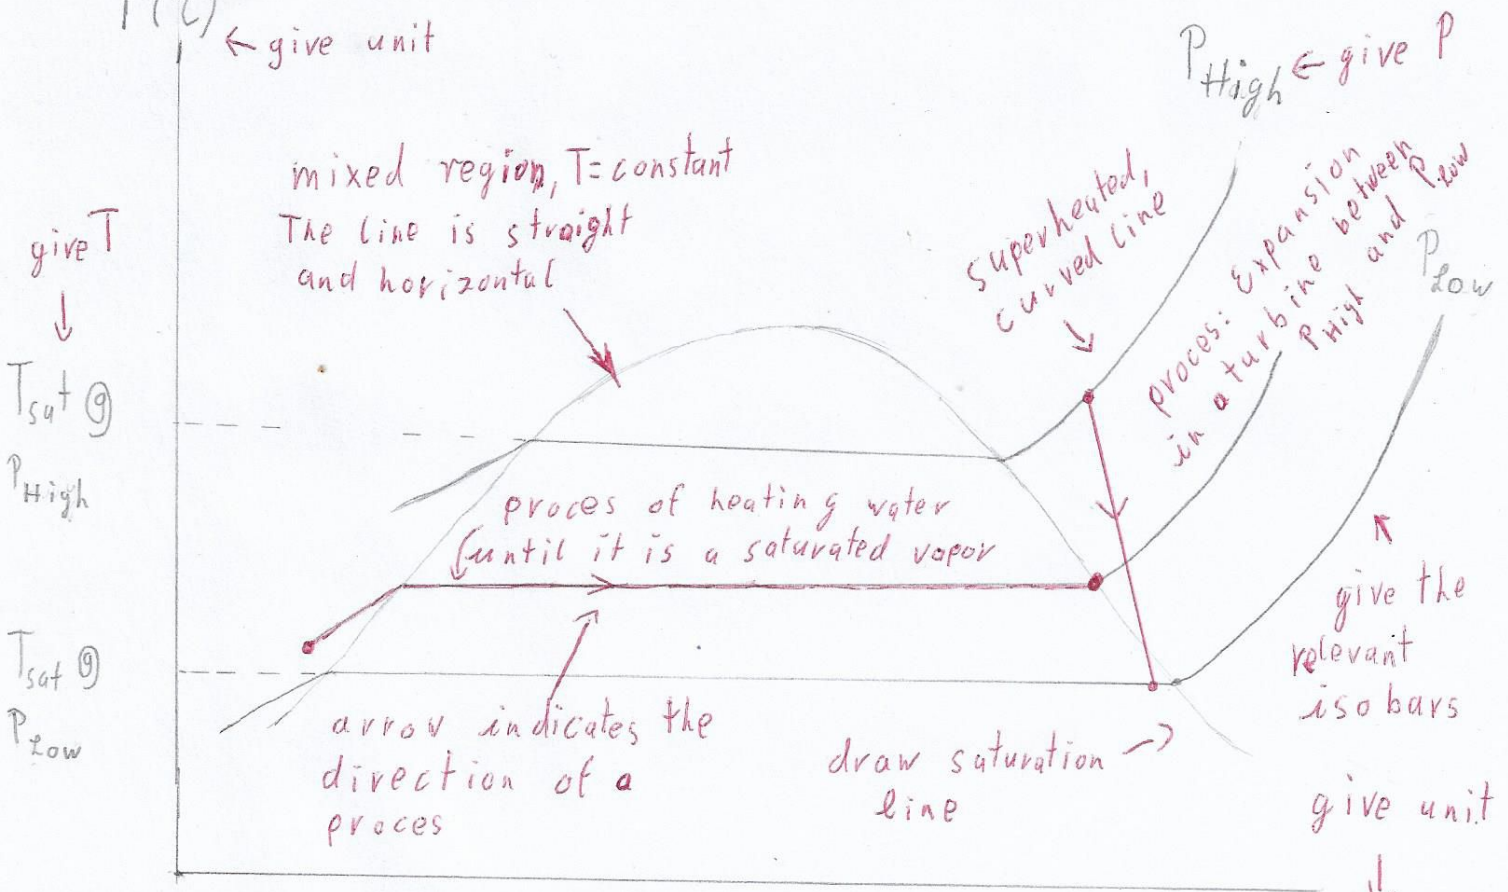 T(C)
← give unit
P High ← give P
mixed region, T=constant
The line is straight
and horizontal
superheated,
curved line
proces: Expansion
in a turbine between
P High and P Low
P Low
give T
Tsat @
P High
proces of heating water
until it is a saturated vapor
give the
relevant
isobars
Tsat @
P Low
arrow indicates the
direction of a
proces
draw saturation
line
give unit